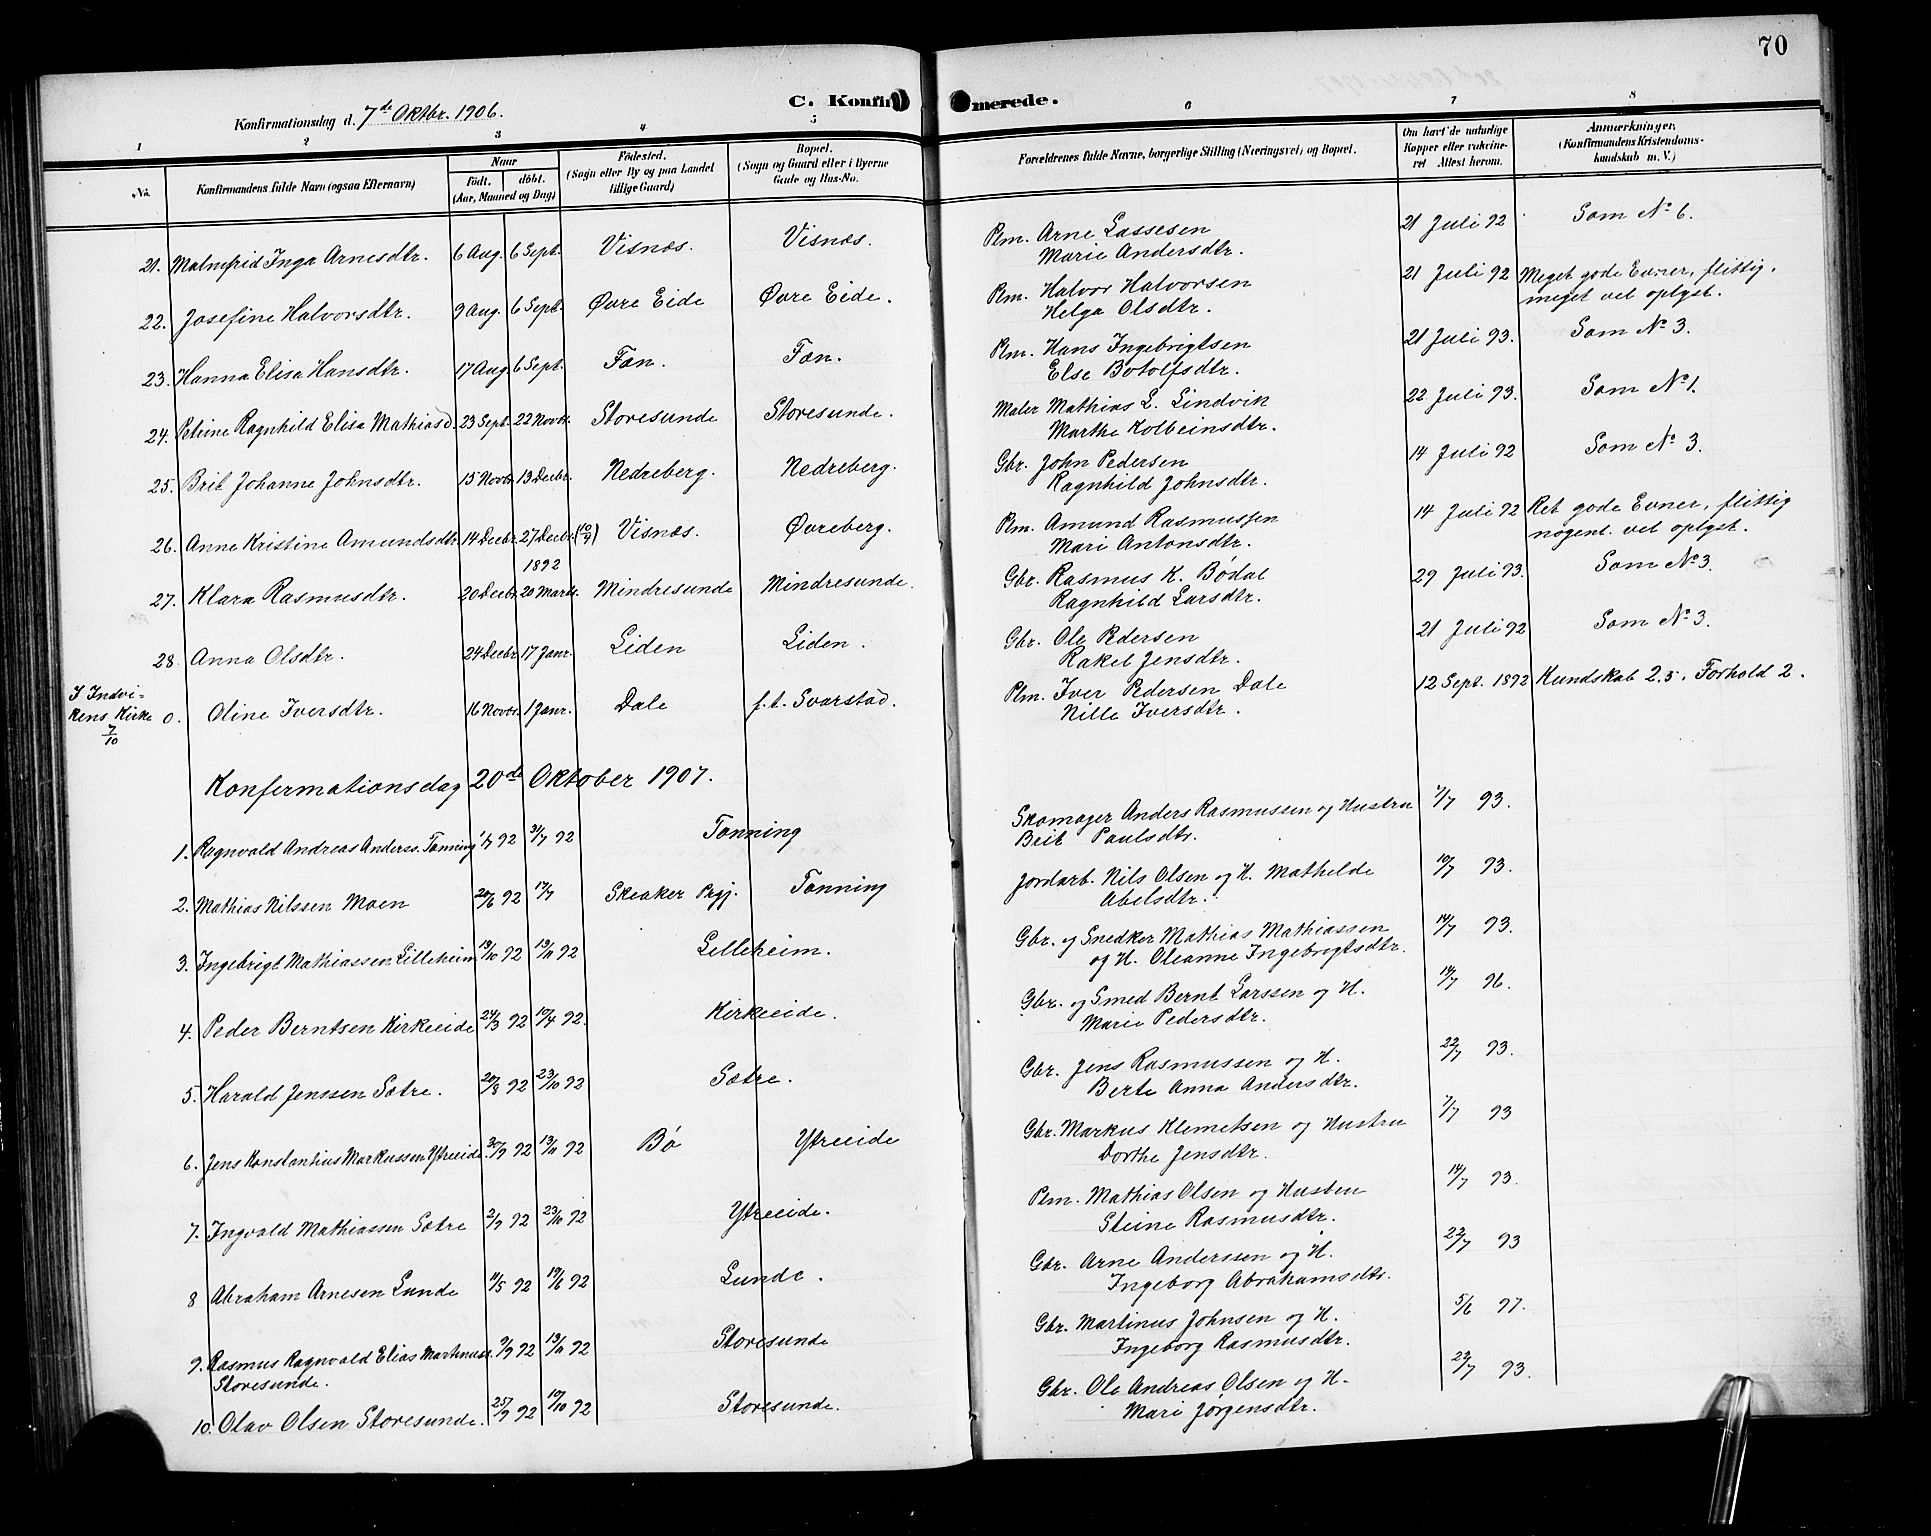 70
Konfirmationsdag d. 7de Oktbr. 1906.
C. Konfirmerede.
1 2 3 4 5 6 7 8
No. Konfirmandens fulde Navn (ogsaa Efternavn) Naar Født. døbt. (Aar, Maaned og Dag) Fødested. (Sogn eller By og paa Landet tillige Gaard) Bopæl. (Sogn og Gaard eller i Byerne Gade og Hus-No. Forældrenes fulde Navne, borgerlige Stilling (Næringsvei) og Bopæl. Om havt de naturlige Kopper eller vakcineret Attest herom. Anmærkninger. (Konfirmandens Kristendomskundskab m. V.)
21. Malmfrid Inga Arnesdtr. 6 Aug. 6 Sept. Visnæs. Visnæs. Plm. Arne Lassesen 21 Juli 92 Som No 6.
Marie Andersdtr.
22. Josefine Halvorsdtr. 9 Aug. 6 Sept. Øvre Eide Øvre Eide. Plm. Halvor Halvorsen 21 Juli 92 Meget gode Evner, flittig,
Helga Olsdtr. meget vel oplyst.
23. Hanna Elisa Hansdtr. 17 Aug 6 Sept. Fon. Fon. Plm. Hans Ingebrigtsen 21 Juli 93. Som No 3.
Else Botolfsdtr.
24. Petrine Ragnhild Elisa Mathiasd. 23 Sept. 22 Novbr. Storesunde Storesunde. Maler Mathias L. Lindvik 22 Juli 93. Som No 1.
Marthe Kolbeinsdtr.
25. Brit Johanne Johnsdtr. 15 Novbr. 13 Decbr. Nedreberg. Nedreberg. Gbr. John Pedersen 14 Juli 92 Som No 3.
Ragnhild Johnsdtr.
26. Anne Kristine Amundsdtr. 14 Decbr. 27 Decbr. Visnæs. Øvreberg. Plm. Amund Rasmussen 14 Juli 92 Ret gode Evner, flittig
Mari Antonsdtr. nogent. vel oplyst.
1892
27. Klara Rasmusdtr. 20 Decbr. 20 Marts. Mindresunde Mindresunde. Gbr. Rasmus K. Bødal 29 Juli 93. Som No 3.
Ragnhild Larsdtr.
28. Anna Olsdtr. 24 Decbr 17 Janr. Liden Liden. Gbr. Ole Pedersen 21 Juli 92 Som No 3.
Rakel Jensdtr.
I Indvikens Kirke 7/10 0. Oline Iversdtr. 16 Novbr. 1 Janr. Dale f.t. Svarstad. Plm. Iver Pedersen Dale 12 Sept. 1892 Kundskab 2.5. Forhold 2.
Nille Iversdtr.
Konfermationsdag 20de Oktober 1907.
1. Ragnvald Andreas Anderss. Tonning 1/7 92 31/7 92 Tonning Skomager Anders Rasmussen og Hustru 7/7 93.
Brit Paulsdtr.
2. Mathias Nilssen Moen 20/6 92 17/7 Skeaker Prgj. Tonning Jordarb. Nils Olsen og H. Mathelde 10/7 93.
Abelsdtr.
3. Ingebrigt Mathiassen Lilleheim 19/10 92 13/11 92 Lilleheim. Gbr. og Snedker Mathias Mathiassen 14/7 93.
og H. Oleanne Ingebrigtsdtr.
4. Peder Berntsen Kirkeeide 24/3 92 10/4 92. Kirkeeide. Gbr. og Smed Bernt Larssen og H. 14/7 96.
Marie Pedersdtr.
5. Harald Jenssen Sætre. 20/8 92 23/10 92 Sætre. Gbr. Jens Rasmussen og H. 22/7 93.
Berte Anna Andersdtr.
6. Jens Konstantius Markussen Ytreeide. 30/9 92 13/11 92 Bø Ytreeide Gbr. Markus Klemetsen og Hustru 7/7 93
Dorthe Jensdtr.
7. Ingvald Mathiassen Sætre 2/9 92 23/10 92 Ytreeide. Plm. Mathias Olsen og Hustru 14/7 93.
Steine Rasmusdtr.
8 Abraham Arnesen Lunde 11/5 92 19/6 92 Lunde. Gbr. Arne Anderssen og H. 22/7 93
Ingeborg Abrahamsdtr.
9. Rasmus Ragnvald Elias Martinuss. 9/9 92 13/11 92 Storesunde Gbr. Martinus Johnsen og H. 5/6 97.
Storesunde. Ingeborg Rasmusdtr.
10. Olav Olsen Storesunde. 25/9 92 19/10 92 Storesunde. Gbr. Ole Andreas Olsen og H. 22/7 93.
Mari Jørgensdtr.